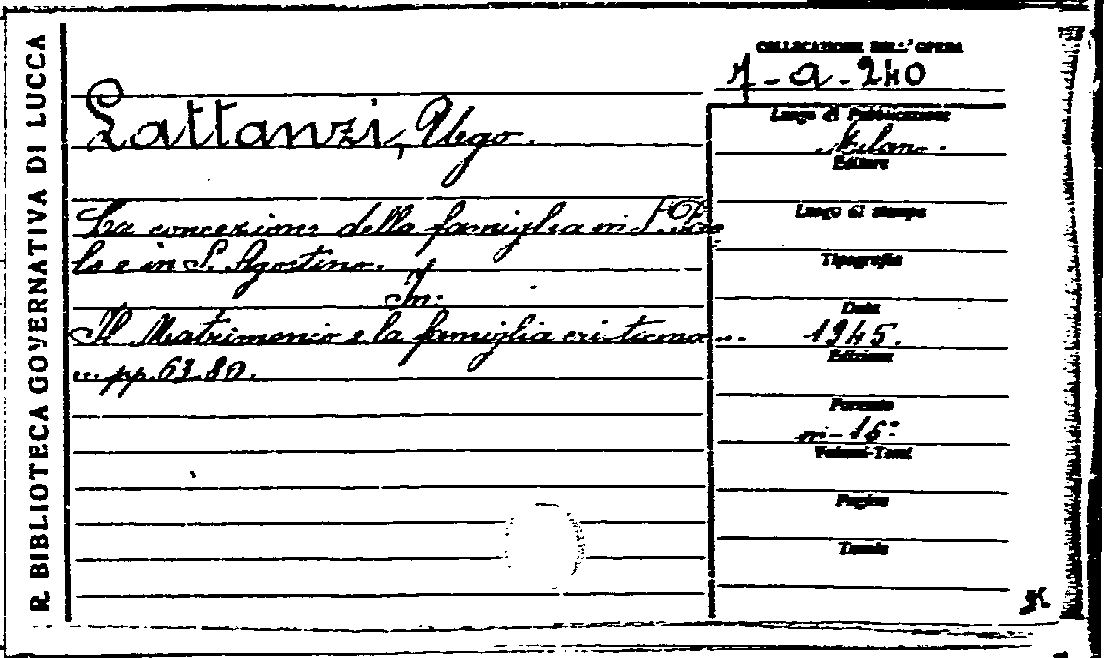 R. BIBLIOTECA GOVERNATIVA DI LUCCA
COLLOCAZIONE DELL'OPERA
7-a-240
Lattanzi, Ugo.
La concezione della famiglia in S. Pao
lo e in S. Agostino.
In:
Il Matrimonio e la famiglia cristiana ...
... pp. 63-80.
Luogo di Pubblicazione
Milano.
Editore
Luogo di stampa
Tipografia
Data
1945.
Edizione
Formato
in-16°
Volumi-Tomi
Pagine
Tavole